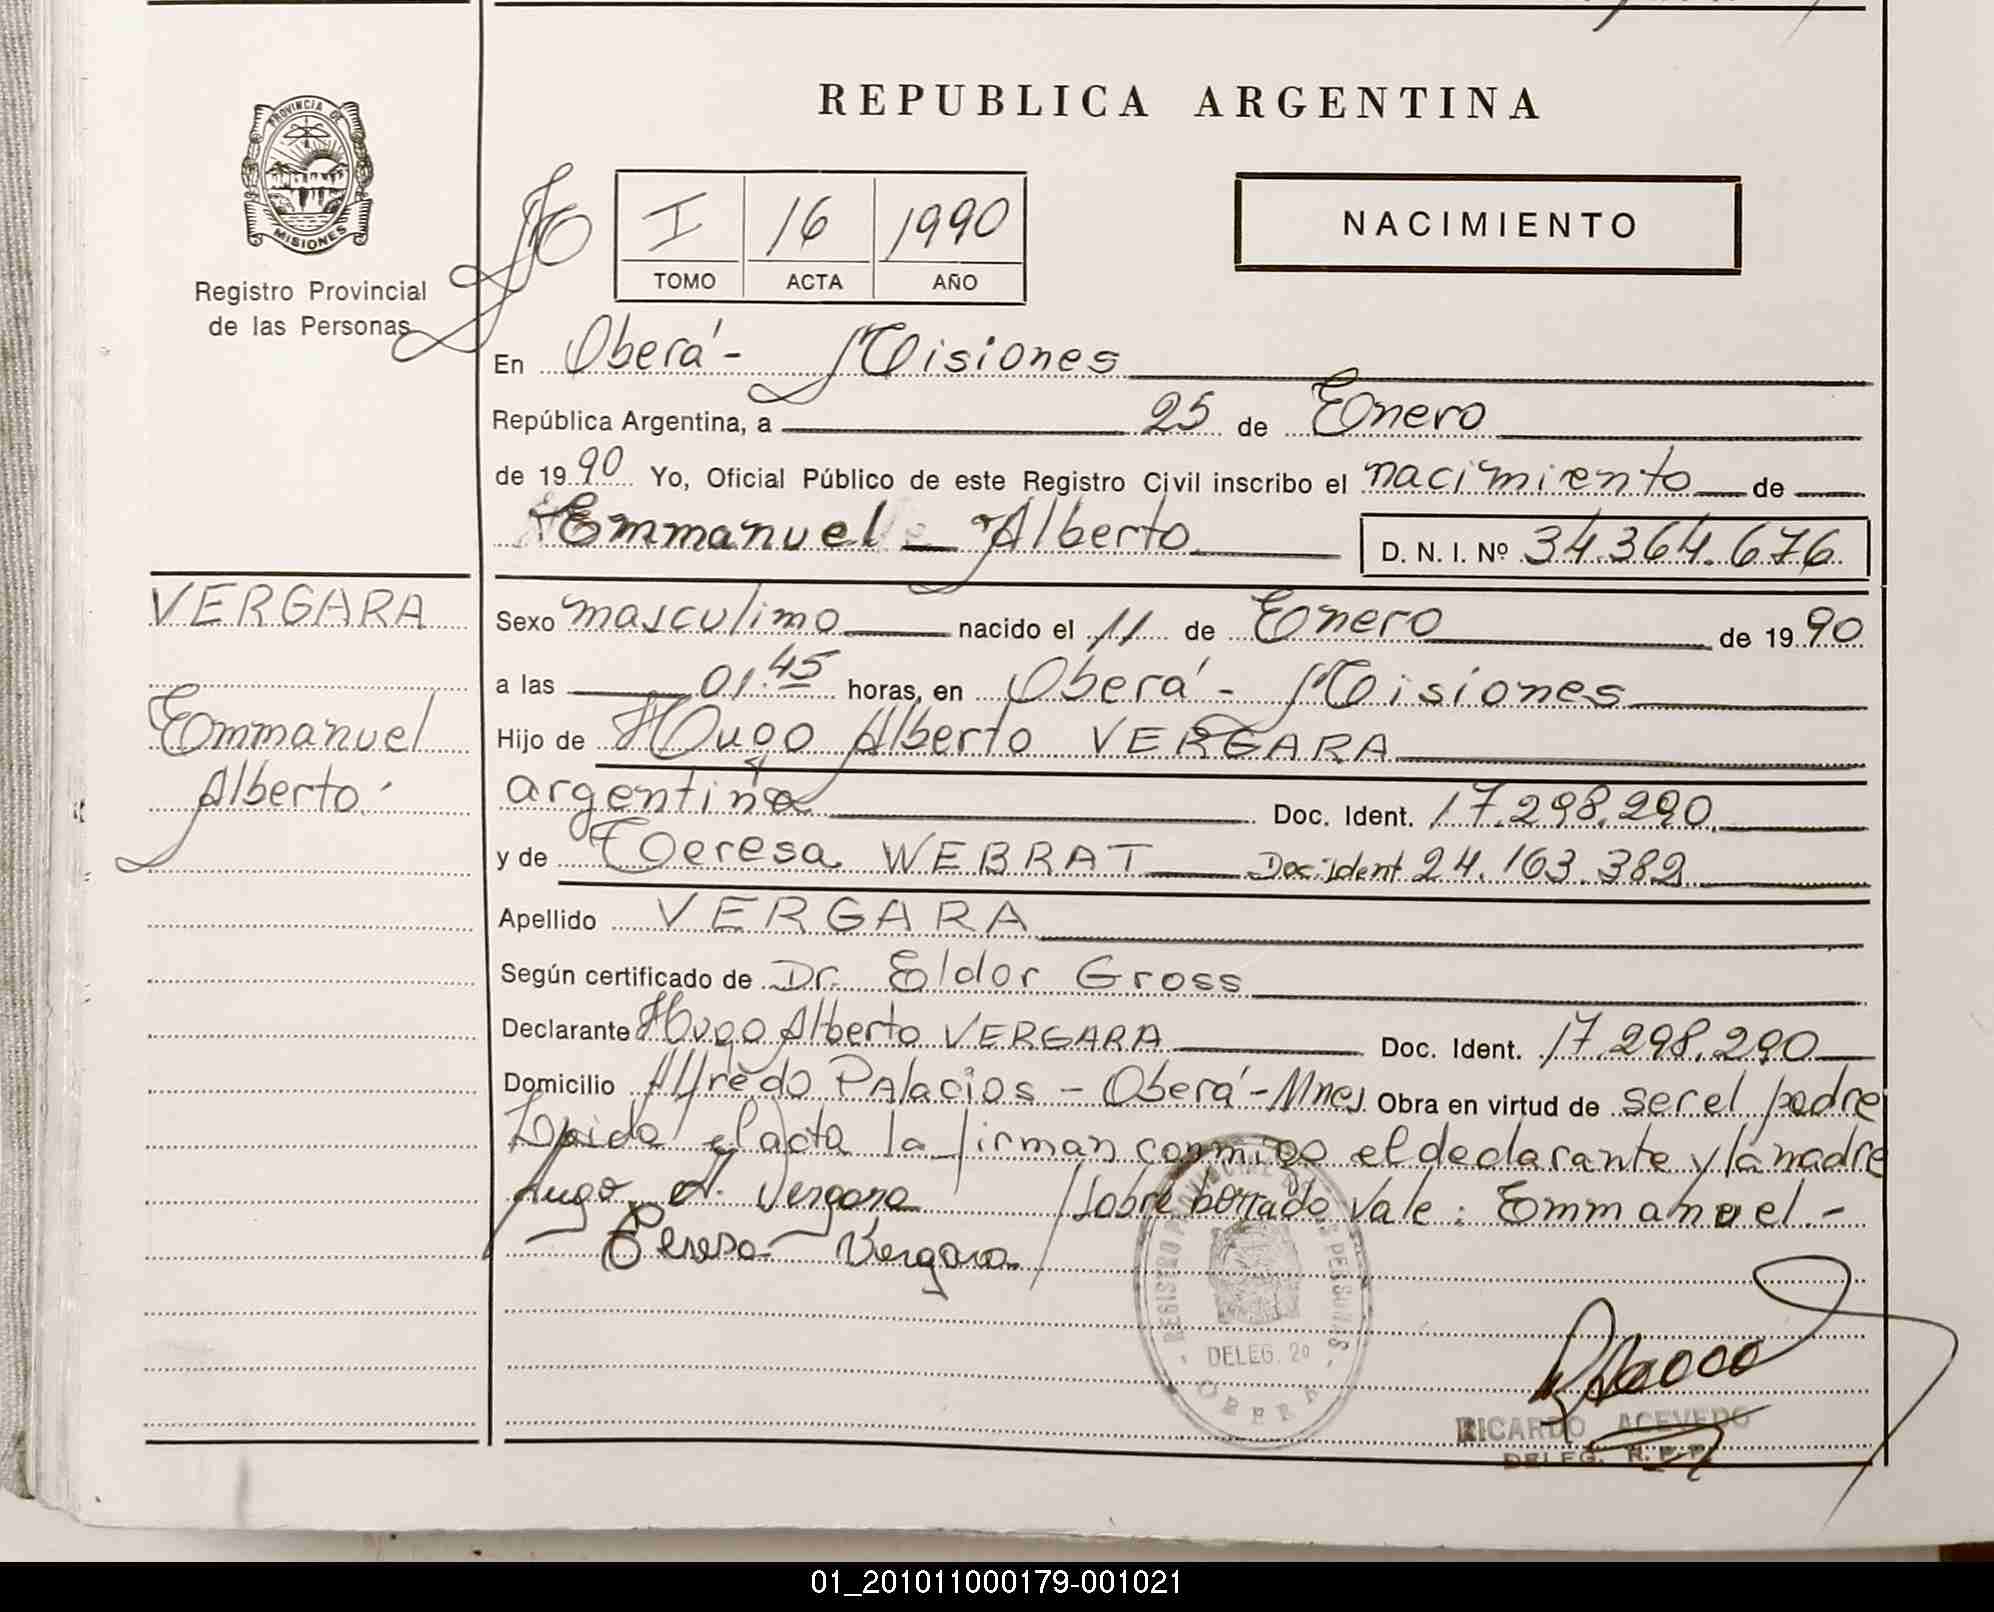 REPUBLICA ARGENTINA
PROVINCIA DE
MISIONES
Registro Provincial
de las Personas
I 16 1990
TOMO ACTA AÑO
NACIMIENTO
En Oberá - Misiones
República Argentina, a 25 de Enero
de 1990 Yo, Oficial Público de este Registro Civil inscribo el nacimiento de
Emmanuel - Alberto D. N. I. Nº 34.364.676
VERGARA
Emmanuel
Alberto
Sexo masculino nacido el 11 de Enero de 1990
a las 01.45 horas, en Oberá - Misiones
Hijo de Hugo Alberto VERGARA
argentino Doc. Ident. 17.298.290
y de Teresa WEBRAT Doc. Ident 24.163.382
Apellido VERGARA
Según certificado de Dr. Eldor Gross
Declarante Hugo Alberto VERGARA Doc. Ident. 17.298.290
Domicilio Alfredo PAlacios - Oberá - Mnes Obra en virtud de ser el padre
Leida el acta la firman conmigo el declarante y la madre
Hugo A. Vergara / Sobre borrado Vale: Emmanuel.-
Teresa Vergara
REGISTRO PROVINCIAL DE LAS PERSONAS
DELEG. 20
OBERA
RICARDO ACEVEDO
DELEG. R. P. P.
01_201011000179-001021